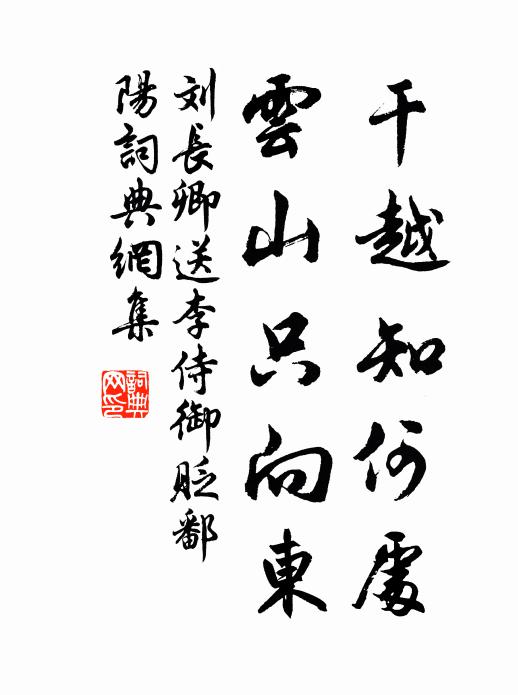 干越知何處
雲山只向東
刘長卿送李侍御貶鄱
陽詞典網集
詞典网印